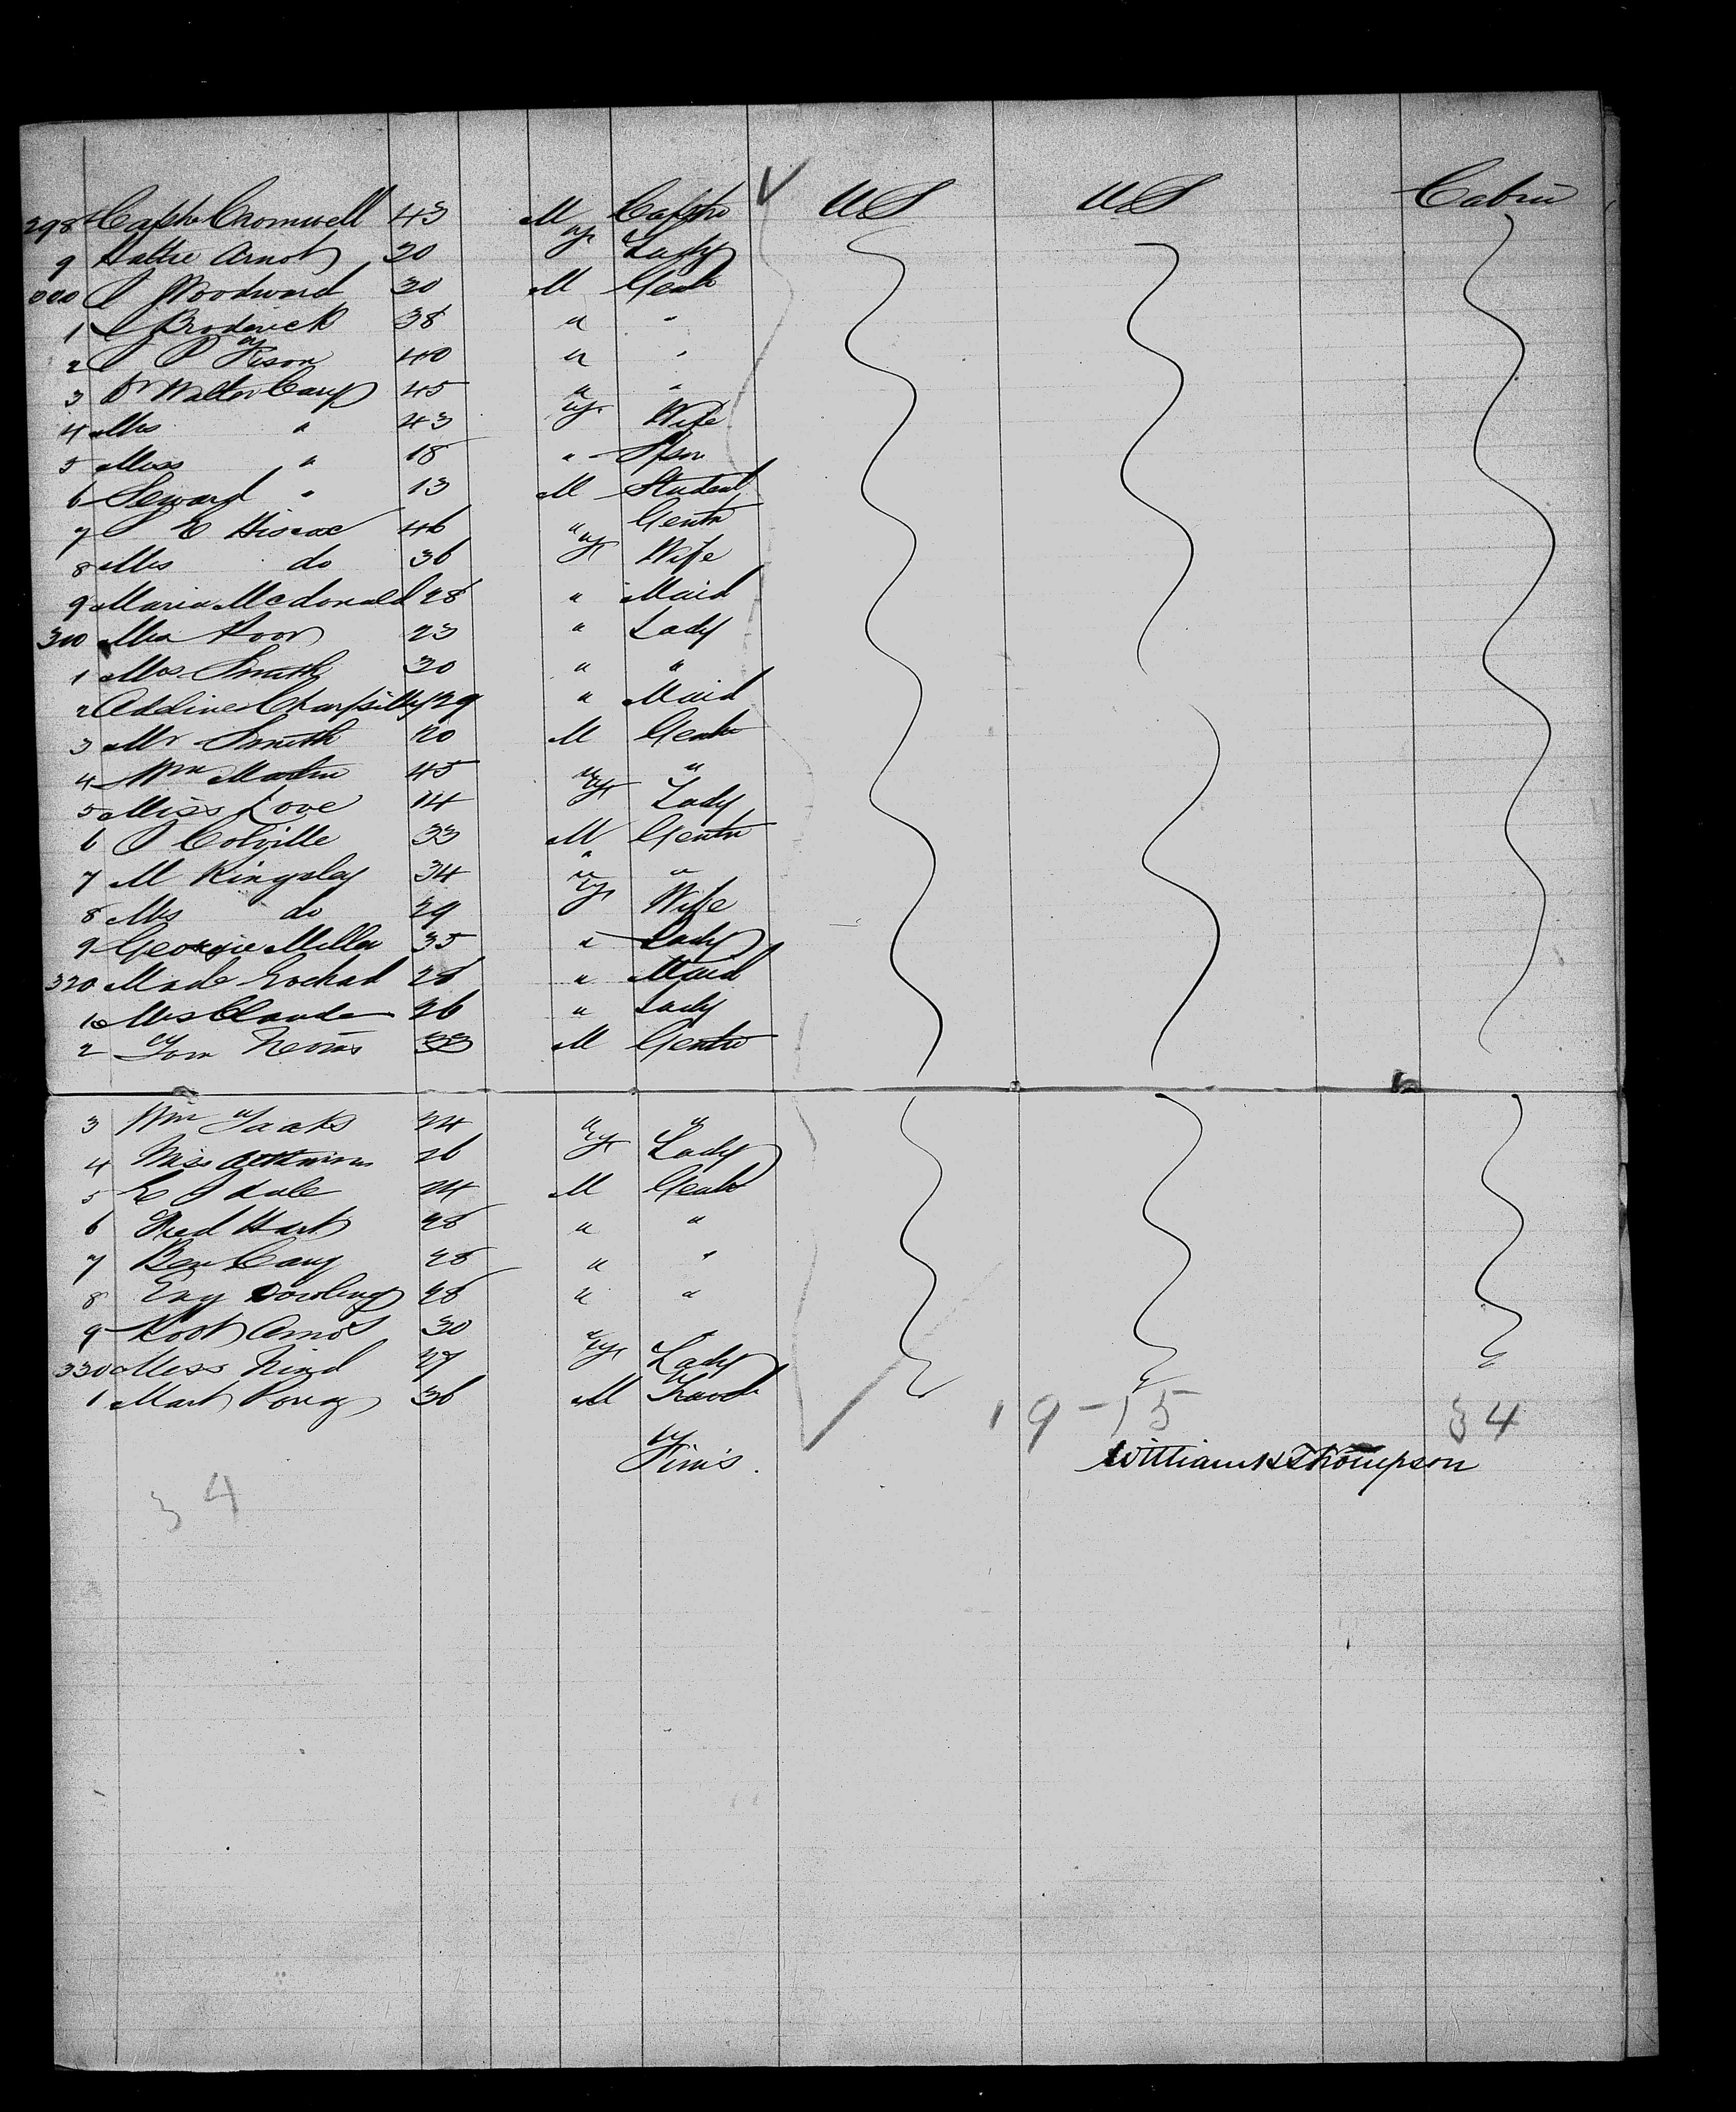 298 Captn Cromwell 43 M Captn US US Cabin
9 Hattie Arnot 20 F Lady
000 J Woodward 30 M Gentn
1 J Broderick 38 " "
2 J P 40 " "
3 Dr Walter Cary 45 " "
4 Mrs " 43 F Wife
5 Miss " 18 " Spsn
6 Seward " 13 M Student
7 J E Hiscox 46 " Gentn
8 Mrs do 36 F Wife
9 Maria Mcdonald 28 " Maid
310 Mrs Hoor 23 " Lady
1 Mrs Smith 30 " "
2 Addine 29 " Maid
3 Mr Smith 20 M Gentn
4 Wm Martin 45 " "
5 Miss Love 14 F Lady
6 J Colville 33 M Gentn
7 M Kingsley 34 " "
8 Mrs do 29 F Wife
9 Georgie Miller 35 " Lady
320 Made 28 " Maid
1 Mrs Claude 26 " Lady
2 Tom Nevins 33 M Gentn
3 Wm Jacks 24 " "
4 Miss 26 F Lady
5 E J Dale 24 M Gentn
6 Fred Hart 28 " "
7 Ben Cary 28 " "
8 Eny Dowling 28 " "
9 Robt Arnot 30 " "
330 Miss Nind 27 F Lady
1 Mart 36 M
19-15 34
Finis. William H Thompson
34